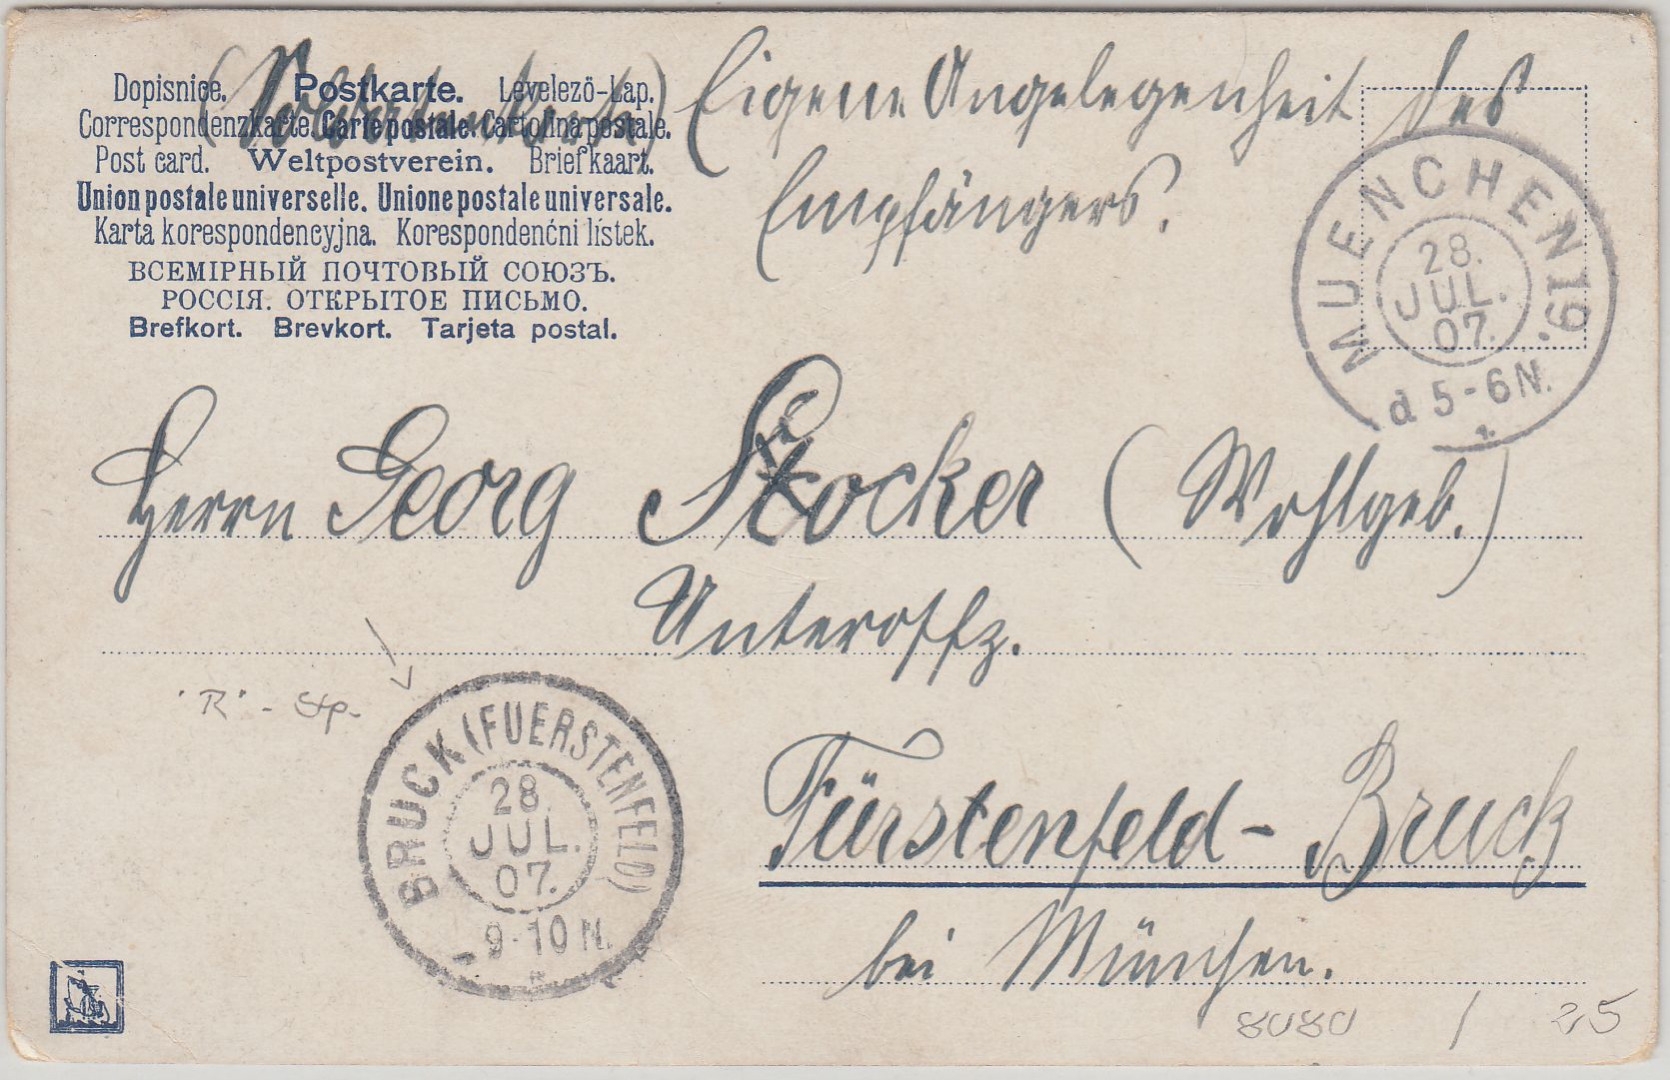 Dopisnice. Postkarte. Levelező-Lap.
Correspondenzkarte. Carte postale. Cartolina postale.
Post card. Weltpostverein. Briefkaart.
Union postale universelle. Unione postale universale.
Karta korespondencyjna. Korespondenćni lístek.
ВСЕМІРНЫЙ ПОЧТОВЫЙ СОЮЗЪ.
РОССІЯ. ОТКРЫТОЕ ПИСЬМО.
Brefkort. Brevkort. Tarjeta postal.
Eigene Angelegenheit des
Empfängers.
MUENCHEN 19.
28.
JUL.
07.
d 5-6 N.
Herrn Georg Stocker (Wohlgeb.)
Unteroffz.
"R" - Stp.
BRUCK (FUERSTENFELD)
28.
JUL.
07.
9-10 N.
Fürstenfeld - Bruck
bei München.
8080 / 25